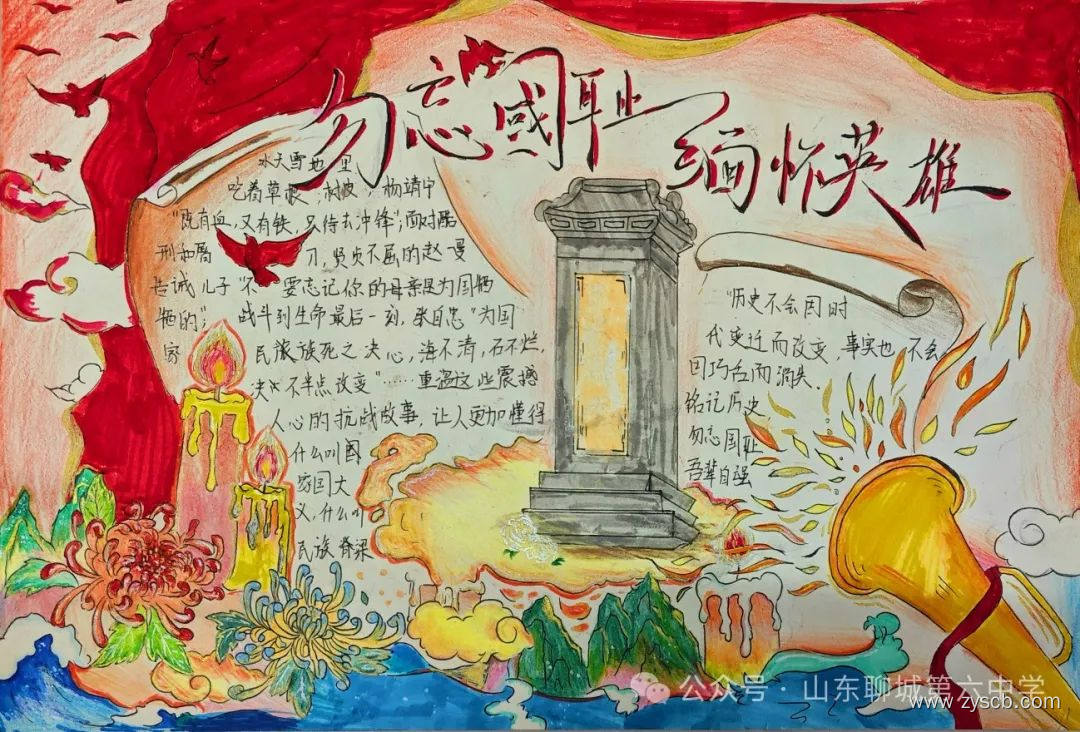 勿忘國耻 缅怀英雄
冰天雪地里
吃着草根,树皮 杨靖宇
“既有血,又有铁,只待去冲锋”;面对酷
刑和屠 刀,坚贞不屈的赵一曼
告诫儿子“不 要忘记你的母亲是为国牺
牲的”; 战斗到生命最后一刻,来自忠“为国
家 民族族死之决心,海不清,石不烂,
决 不半点改变”……重温这些震撼
人心的抗战故事,让人更加懂得
什么叫國
家国大
义,什么叫
民族脊梁
“历史不会因时
代变迁而改变,事实也不会
因巧舌而消失.
铭记历史
勿忘国耻
吾辈自强
公众号·山东聊城第六中学
www.zyscb.com